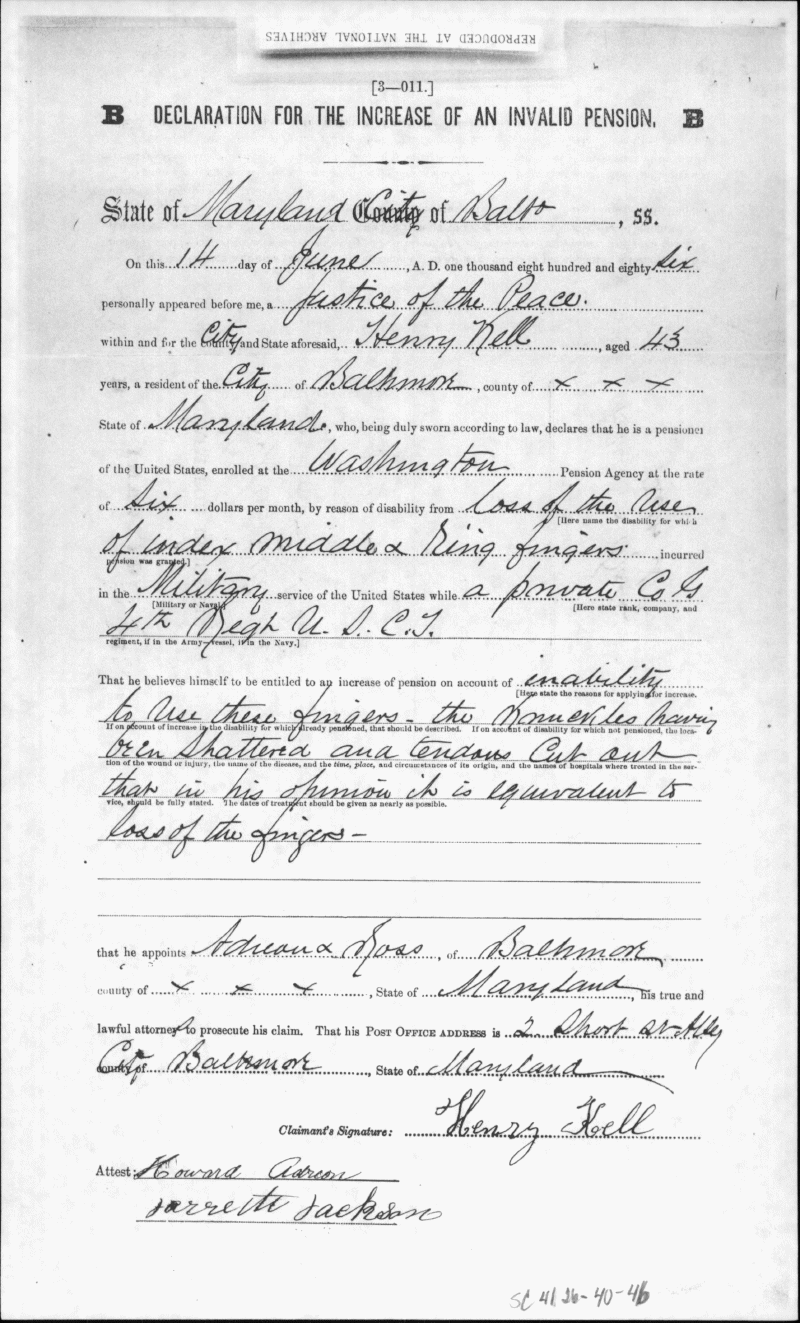 REPRODUCED AT THE NATIONAL ARCHIVES
[3—011.]
B DECLARATION FOR THE INCREASE OF AN INVALID PENSION. B
State of Maryland City of Balto, SS.
On this 14 day of June, A. D. one thousand eight hundred and eighty six
personally appeared before me, a Justice of the Peace.
within and for the City and State aforesaid, Henry Kell, aged 43
years, a resident of the City of Baltimore, county of x x x
State of Maryland, who, being duly sworn according to law, declares that he is a pensioner
of the United States, enrolled at the Washington Pension Agency at the rate
of six dollars per month, by reason of disability from loss of the use
[Here name the disability for which
of index middle & Ring fingers incurred
pension was granted.]
in the Military service of the United States while a private Co G
[Military or Naval] [Here state rank, company, and
4th Regt U. S. C. T.
regiment, if in the Army—vessel, if in the Navy.]
That he believes himself to be entitled to an increase of pension on account of inability
[Here state the reasons for applying for increase.
to use these fingers - the Knuckles having
If on account of increase in the disability for which already pensioned, that should be described. If on account of disability for which not pensioned, the loca-
been shattered and tendons Cut out
tion of the wound or injury, the name of the disease, and the time, place, and circumstances of its origin, and the names of hospitals where treated in the ser-
that in his opinion it is equivalent to
vice, should be fully stated. The dates of treatment should be given as nearly as possible.
loss of the fingers -
that he appoints Adreon & Ross, of Baltimore,
county of x x x, State of Maryland, his true and
lawful attorneys to prosecute his claim. That his POST OFFICE ADDRESS is 2 Short st Alley
City Baltimore, State of Maryland
Claimant's Signature: Henry Kell
Attest: Howard Adreon
Jarrett Jackson
SC 41 26-40-46